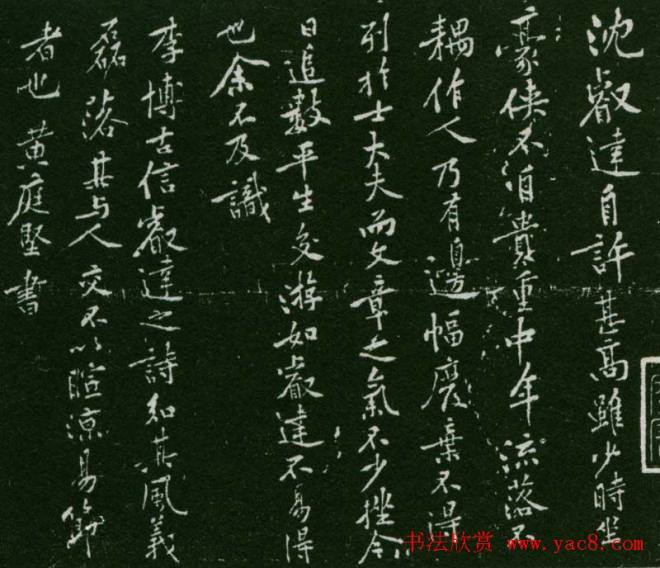 沈叡達自許甚高雖少時坐
豪俠不自貴重中年流落不
耦作人乃有邊幅廢棄不得
列於士大夫而文章之氣不少挫今
日追數平生交游如叡達不易得
也余不及識
李博古信叡達之詩知其風義
磊落其與人交不以暄涼易節
者也黄庭堅書
书法欣赏 www.yac8.com